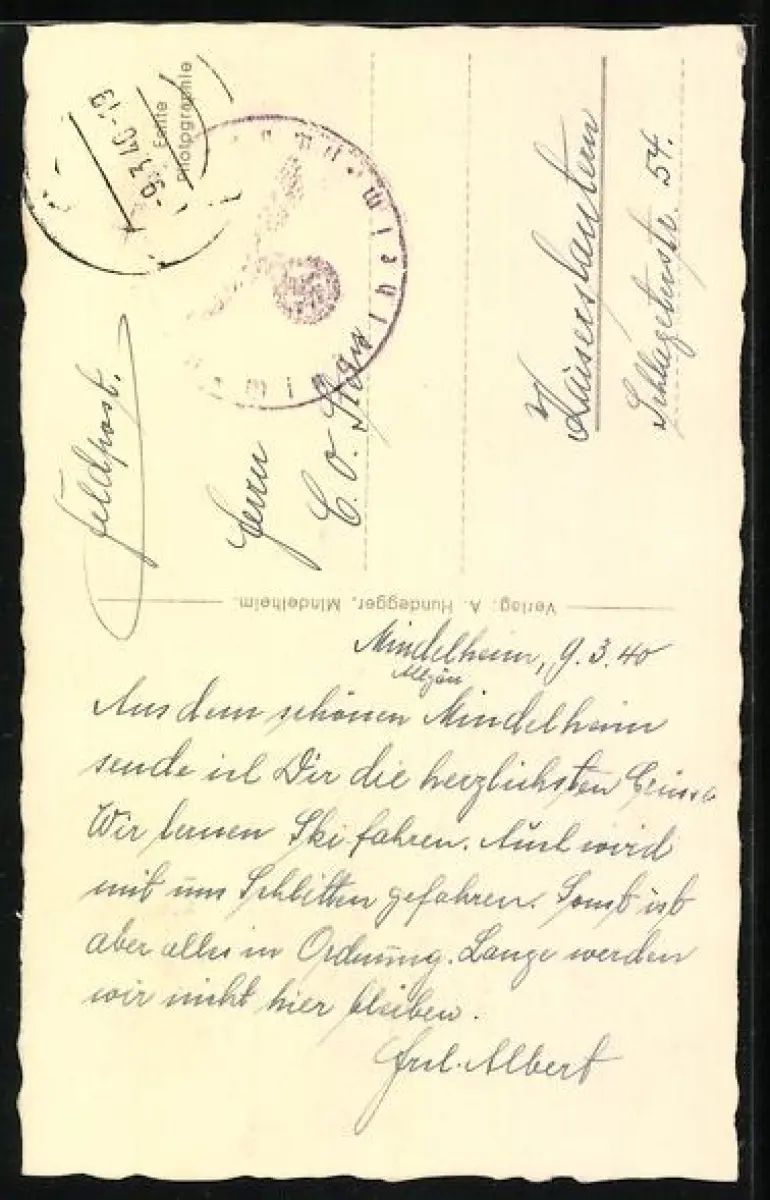 -9.3.40-19
Echte
Photographie
Feldpost.
Herrn
C. O.
Kaiserslautern
Schlageterstr. 54.
Verlag: A. Hundegger, Mindelheim.
Mindelheim, 9.3.40
Allgäu
Aus dem schönen Mindelheim
sende ich Dir die herzlichsten Grüsse
Wir lernen Ski fahren. Auch wird
mit uns Schlitten gefahren. Sonst ist
aber alles in Ordnung. Lange werden
wir nicht hier bleiben.
Albert